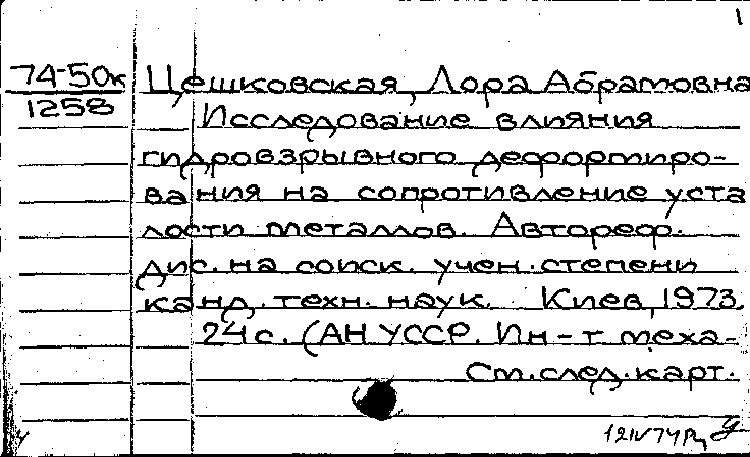 1
74-50к Цешковская, Лора Абрамовна
1258
Исследование влияния
гидровзрывного деформиро-
вания на сопротивление уста
лости металлов. Автореф.
дис. на соиск. учен. степени
канд. техн. наук. Киев, 1973.
24 с. (АН УССР. Ин-т меха-
См. след. карт.